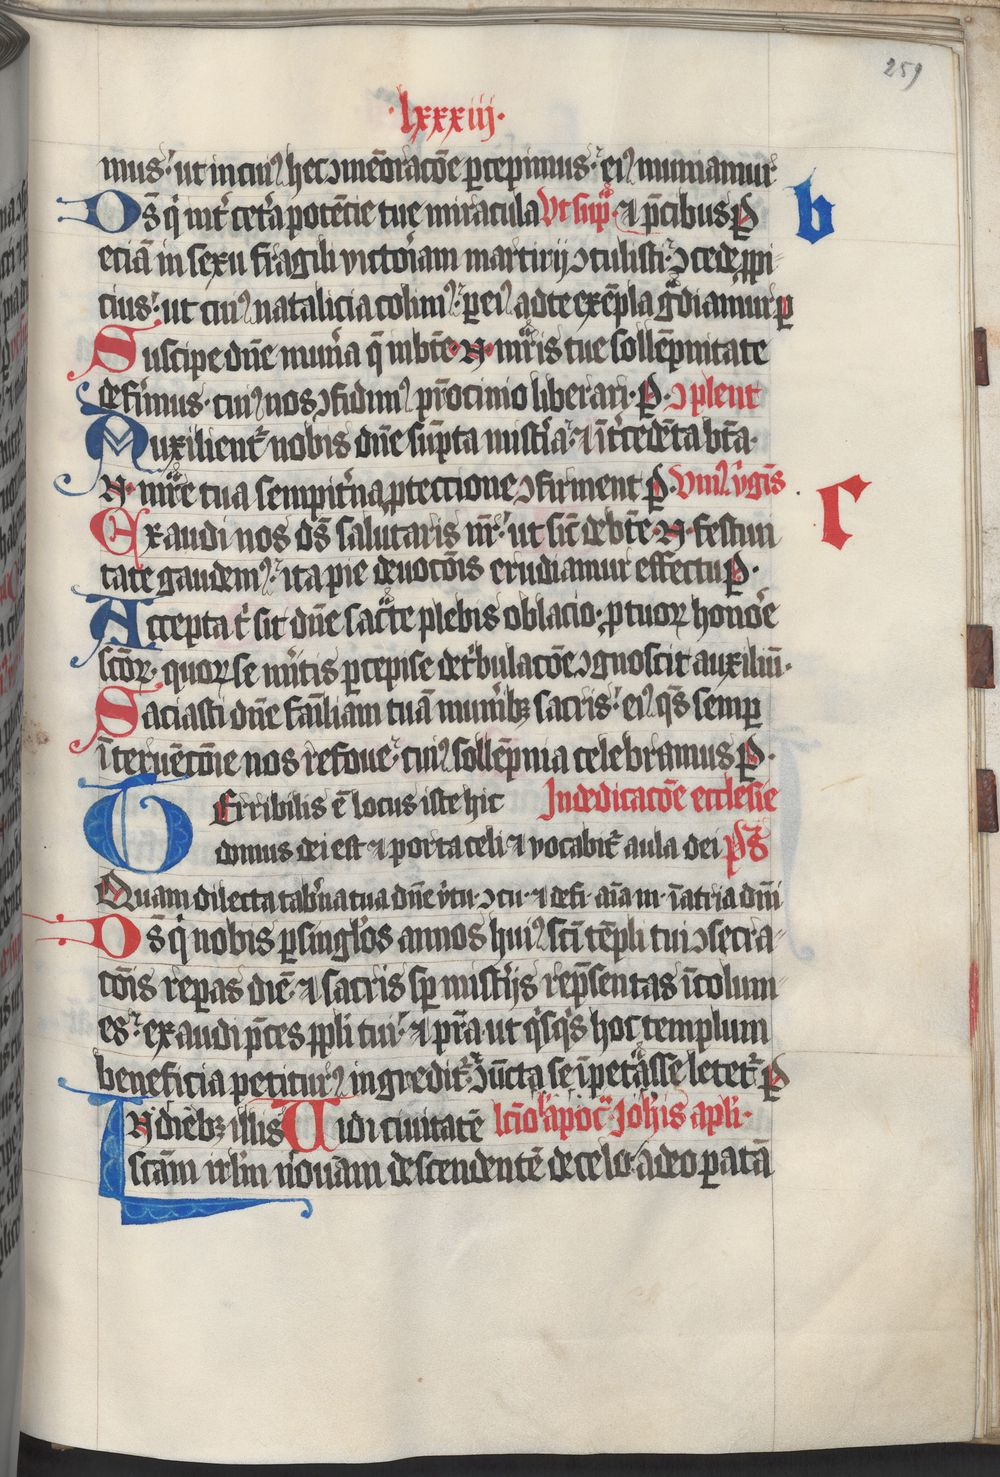 259
·lxxxiij·
mus· ut in cuiꝰ hec ↄmẽoracõe ꝑcepimus· eiꝰ muniamur
b
Ds̃ qͥ int̉ cet̉a potẽcie tue miracula Vt sup͛· ⁊ p̃cibus P
eciã in sexu fragili victoriam martirij ↄtulisti· ↄcede ꝓpi-
cius· ut cuiꝰ natalicia colimꝰ· ꝑ eiꝰ ad te exẽpla g͛diamur P
Suscipe dñe mun̉a q̃ in bt̃e· N· mr̃is tue sollẽpnitate
defimus· cuiꝰ nos ↄfidimꝰ pr̃ocinio liberari· P· ↄplent
Auxilient̉ nobis dñe sũpta mist̉ia· ⁊ int̉cedẽta bt̃a·
N· mr̃e tua sempit̉na ꝓteccione ↄfirment P· Vniꝰ v̉gis
c
Exaudi nos ds̃ salutaris nr̃· ut sic̃ de bt̃e· N· festiui
tate gaudemꝰ· ita pie deuocõis erudiamur effectu P·
Accepta t̉ sit dñe sac̃te plebis oblacio· ꝓ tuoꝝ honor̉e
sc̃oꝝ· quoꝝ se m̉itis ꝑcepise de t̉bulacõe ↄgnoscit auxiliũ·
Saciasti dñe famĩliam tuã mun̉ibꝫ sacris· eiꝰ qs̃ semꝑ
int̃eruẽcõne nos refoue· cuiꝰ sollẽpnia celebramus P·
Terribilis ẽ locus iste hic In dedicacõe ecclesie
domus dei est ⁊ porta celi ⁊ vocabit̉ aula dei ps̃
Quam dilecta tab̉na tua dñe v̉tu· ↄcu· ⁊ defi· aĩa m· in atria dñi
Ds̃ qͥ nobis ꝑ singl̉os annos huiꝰ sc̃i tẽpli tui ↄsecra-
cõis reꝑas diẽ· ⁊ sacris sꝑ mist̉ijs rep̃sentas ĩcolum-
es· exaudi p̃ces ꝓpli tui· ⁊ pr̃a ut qͥsqͥs hoc templum
beneficia petiturꝰ ingredit̉· cũcta se ĩpet͛sse letet̉ P
In diebꝫ illis Uidi ciuitatẽ lc̃io l̉ apoc̃ Joh̉is apl̉i·
sc̃am irl̉m nouam descendentẽ de celo· a deo ꝑatã